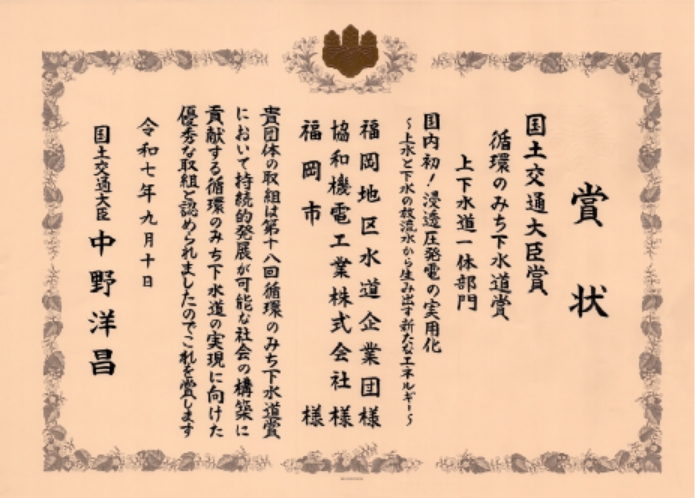 賞状
国土交通大臣賞
循環のみち下水道賞
上下水道一体部門
国内初！浸透圧発電の実用化
～上水と下水の放流水から生み出す新たなエネルギー～
福岡地区水道企業団様
協和機電工業株式会社様
福岡市様
貴団体の取組は第十八回循環のみち下水道賞
において持続的発展が可能な社会の構築に
貢献する循環のみち下水道の実現に向けた
優秀な取組と認められましたのでこれを賞します
令和七年九月十日
国土交通大臣 中野洋昌